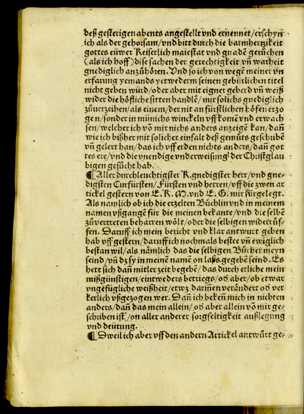 deß gesterigen abents angestellt vnd ernennet / erschyn
ich als der gehorsam / vnd bitt durch die barmhertzigkeit
gottes euwer Keiserlich maiestat vnd gnadē geruchen
(als ich hoff) dise sachen der gerechtigkeit vñ warheit
gnediglich anzůhören. Vnd so ich von wegē meiner vn
erfarung yemands entweder m seinen gebürlichen titel
nicht geben würd / oder aber mit eigner geberd vñ weiß
wider die höfliche sitten handle / mir sollichs gnediglich
zůuerzeihen / als einem / der nit an fürstlichen höfen erzo
gen / sonder in münichs wincklen vff komē vnd erwach
sen / welcher ich vō mir nichts anders anzeigē kan / dañ
wie ich bißher mit solicher einfalt deß gemüts geschribē
vñ gelert han / das ich vff erden nichts anders / dañ got
tes err / vnd die vnendige vnderweisung der Christglau
bigen gesůcht hab.
¶ Aller durchleuchtigister K. gnedigster herr / vnd gne
digsten Curfürsten / Fürsten vnd herren / vff die zwen ar
tickel gestern von E. K. M. vnd E. G. mit fürgelegt.
Als namlich ob ich die erzelten Büchlin vnd in meinem
namen vßgangē für die meinen bekante / vnd die selbē
zůvertreten beharren wölt / oder die selbigen widerrůf
fen. Daruff ich mein bericht vnd klar antwurt geben
hab vff gestern / daruff ich noch mals besteē vñ ewiglich
bestan wil / als nämlich das die selbigen Bücher meyn
seind / vñ dz sy in meinē namē on laßs gegebē seind. Es
hett sich dañ mitler zeit begebē / das durch etliche mein
mißgünstigen / eintweders betriegs / oß aber / ob etwar
vngefügliche weißheit / etwz darinnē verändert oß ver
kerlich vßgezogen wer. Dañ ich bekēn mich in nichten
anders / dañ das mein allein / oß aber allein vō mir ge
schriben ist / on aller anderer sorgfeltigkeit außlegung
vnd deütung.
¶ Dweil ich aber vff den andern Artickel antwürt ge⸗